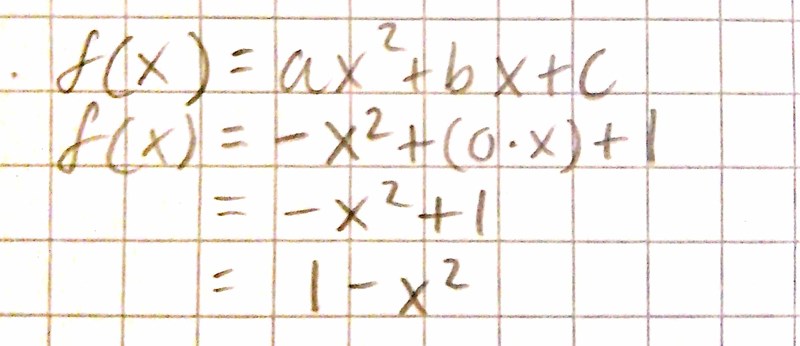 . f(x) = ax² + bx + c
f(x) = -x² + (0·x) + 1
= -x² + 1
= 1 - x²